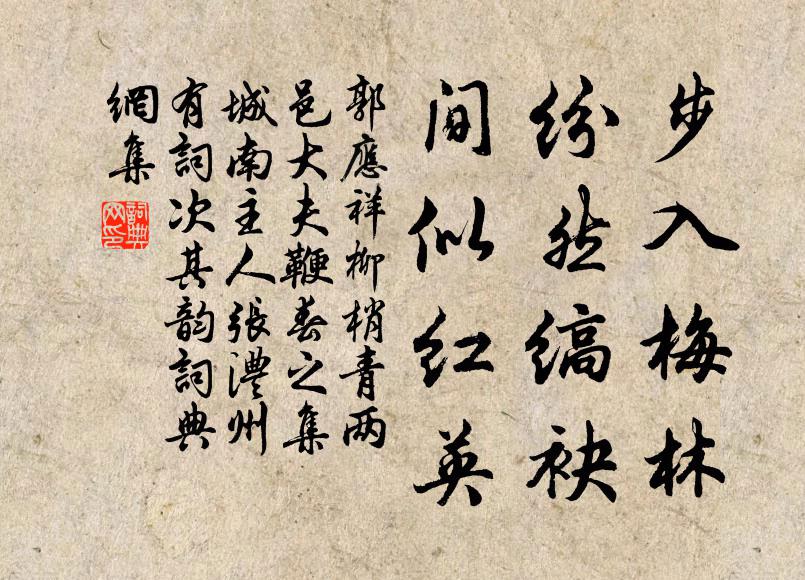 步入梅林
纷然缟袂
间似红英
郭應祥柳梢青两
邑大夫鞭春之集
城南主人張澧州
有詞次其韵詞典
網集
詞典
网印